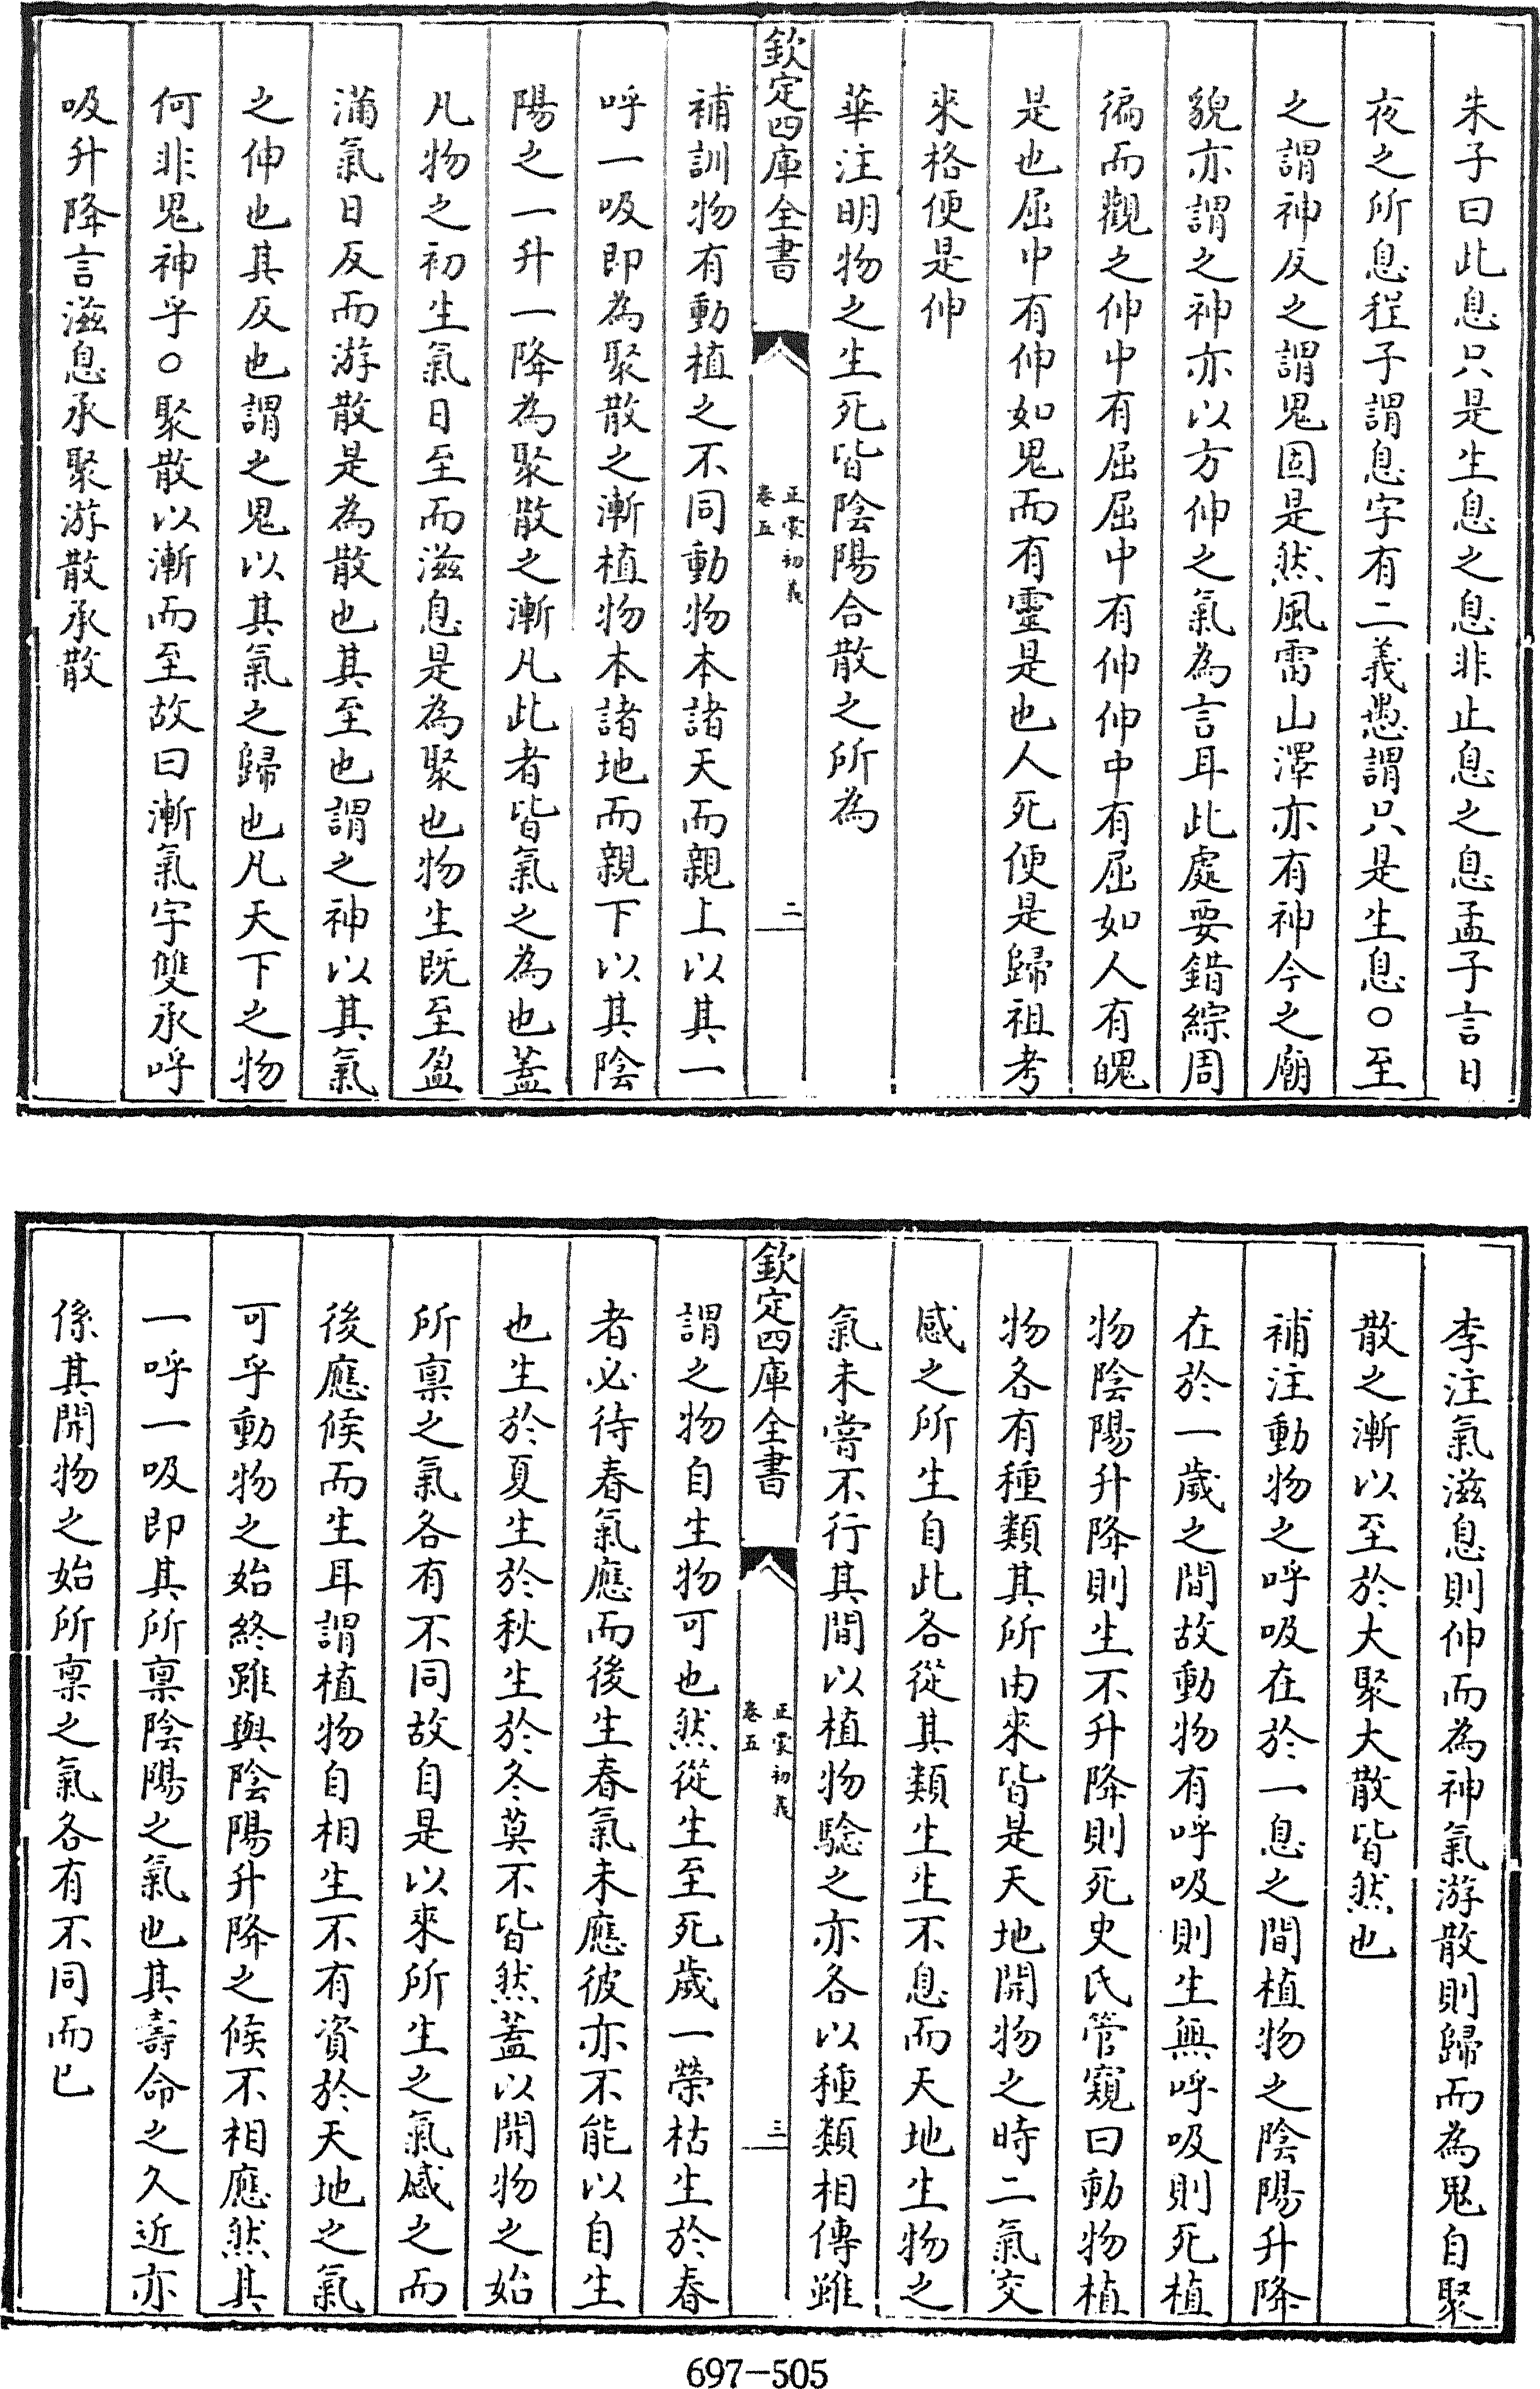 朱子曰此息只是生息之息非止息之息孟子言日
夜之所息程子謂息字有二義愚謂只是生息○至
之謂神反之謂鬼固是然風雷山澤亦有神今之廟
貌亦謂之神亦以方伸之氣為言耳此處要錯綜周
徧而觀之伸中有屈屈中有伸伸中有屈如人有魄
是也屈中有伸如鬼而有靈是也人死便是歸祖考
來格便是伸
華注明物之生死皆陰陽合散之所為
欽定四庫全書
正蒙初義
卷五
二
補訓物有動植之不同動物本諸天而親上以其一
呼一吸即為聚散之漸植物本諸地而親下以其陰
陽之一升一降為聚散之漸凡此者皆氣之為也蓋
凡物之初生氣日至而滋息是為聚也物生既至盈
滿氣日反而游散是為散也其至也謂之神以其氣
之伸也其反也謂之鬼以其氣之歸也凡天下之物
何非鬼神乎○聚散以漸而至故曰漸氣字雙承呼
吸升降言滋息承聚游散承散
李注氣滋息則伸而為神氣游散則歸而為鬼自聚
散之漸以至於大聚大散皆然也
補注動物之呼吸在於一息之間植物之陰陽升降
在於一歲之間故動物有呼吸則生無呼吸則死植
物陰陽升降則生不升降則死史氏管窺曰動物植
物各有種類其所由來皆是天地開物之時二氣交
感之所生自此各從其類生生不息而天地生物之
氣未嘗不行其間以植物騐之亦各以種類相傳雖
欽定四庫全書
正蒙初義
卷五
三
謂之物自生物可也然從生至死歲一榮枯生於春
者必待春氣應而後生春氣未應彼亦不能以自生
也生於夏生於秋生於冬莫不皆然蓋以開物之始
所禀之氣各有不同故自是以來所生之氣感之而
後應候而生耳謂植物自相生不有資於天地之氣
可乎動物之始終雖與陰陽升降之候不相應然其
一呼一吸即其所禀陰陽之氣也其壽命之久近亦
係其開物之始所禀之氣各有不同而已
697-505